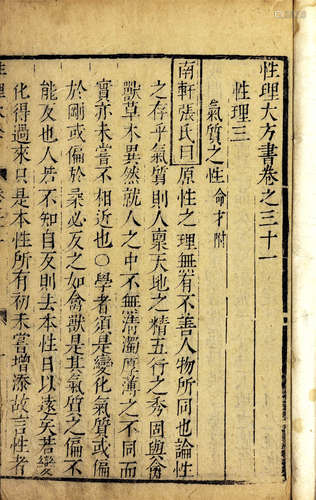 性理大方書卷之三十一
性理三
氣質之性 命才附
南軒張氏曰原性之理無有不善人物所同也論性
之存乎氣質則人稟天地之精五行之秀固與禽
獸草木異然就人之中不無清濁厚薄之不同而
實亦未嘗不相近也○學者須是變化氣質或偏
於剛或偏於柔必反之如禽獸是其氣質之偏不
能反也人若不知自反則去本性日以遠矣若變
化得過來只是本性所有初未嘗增添故言性者